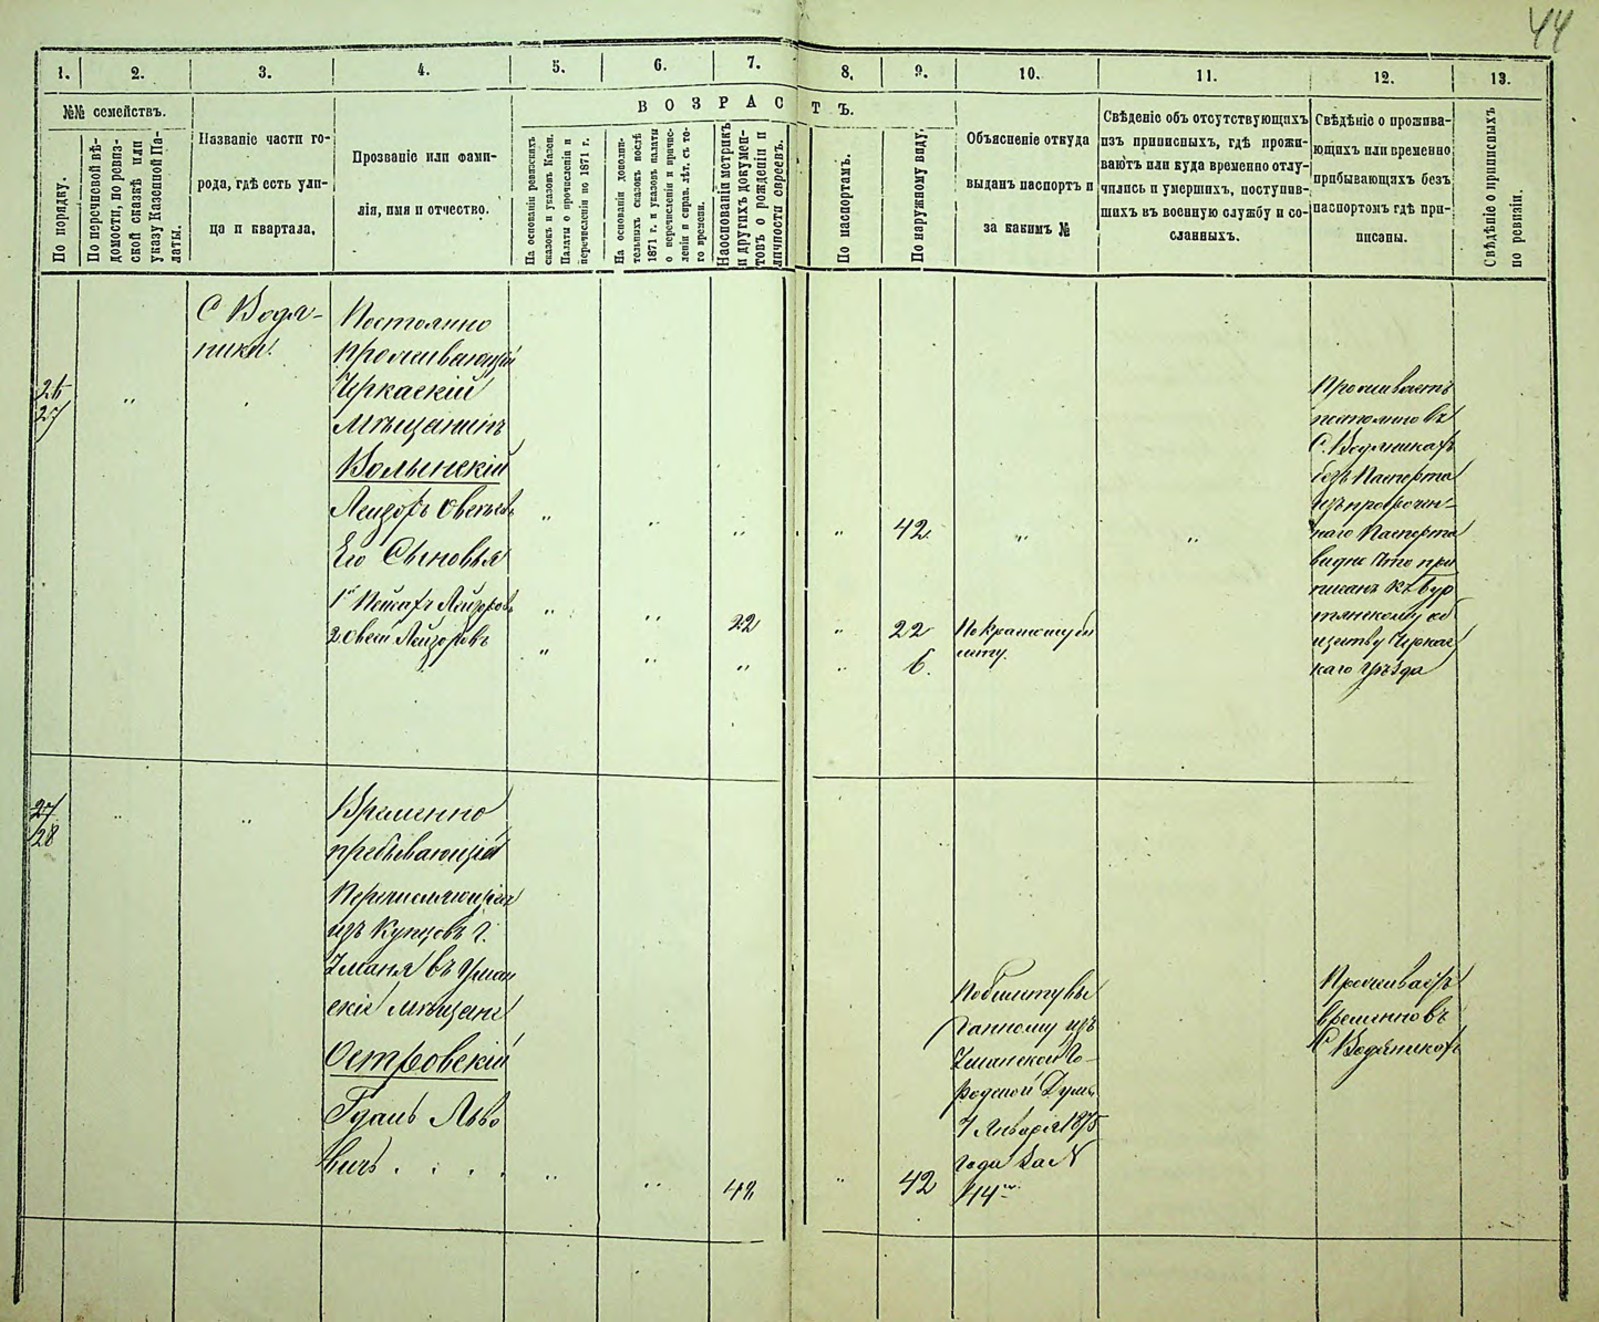 44
1.
2.
3.
4.
5.
6.
7.
8.
9.
10.
11.
12.
13.
№№ семействъ.
По порядку.
По перечневой вѣ-
домости, по ревиз-
ской сказкѣ или
указу Казенной Па-
латы.
Названіе части го-
рода, гдѣ есть ули-
ца и квартала.
Прозваніе или фами-
лія, имя и отчество.
ВОЗРАСТЪ.
На основаніи ревизскихъ
сказокъ и указовъ Казен.
Палаты о причисленіи и
перечисленіи по 1871 г.
На основаніи дополни-
тельныхъ сказокъ послѣ
1871 г. и указовъ палаты
о перечисленіи и причис-
леніи и справ. лѣт. съ то-
го времени.
На основаніи метрикъ
и другихъ докумен-
товъ о рожденіи и
личности евреевъ.
По паспортамъ.
По наружному виду.
Объясненіе откуда
выданъ паспортъ и
за какимъ №
Свѣденіе объ отсутствующихъ
изъ приписныхъ, гдѣ прожи-
ваютъ или куда временно отлу-
чились и умершихъ, поступив-
шихъ въ военную службу и со-
сланныхъ.
Свѣдѣніе о прожива-
ющихъ или временно
прибывающихъ безъ
паспортомъ гдѣ при-
писаны.
Свѣдѣніе о приписныхъ
по ревизіи.
26
27
С Водя-
ники.
Постоянно
проживающій
Черкаскій
Мѣщанинъ
Волынскій
Лейзоръ Овсѣевъ
42
Его Сыновья
1й Лейзоровъ
22
22
По
2 Овсей Лейзоровъ
6.
Проживаетъ
постоянно въ
С. Водяникахъ
безъ Паспорта
изъ просрочен-
наго Паспорта
видно что при
писанъ къ Бур
тянскому об
ществу Черкас
каго Уѣзда
27
28
Временно
пребывающій
Перечисляющійся
изъ Купцовъ Г.
Уманя въ Уман
скіе Мѣщане
Островскій
Гдаль Льво
вичъ . . . .
42
42
По билету вы
данному изъ
Уманской Го-
родской Думы
7 Января 1875
года за №
44
Проживаетъ
временно въ
С Водяникахъ